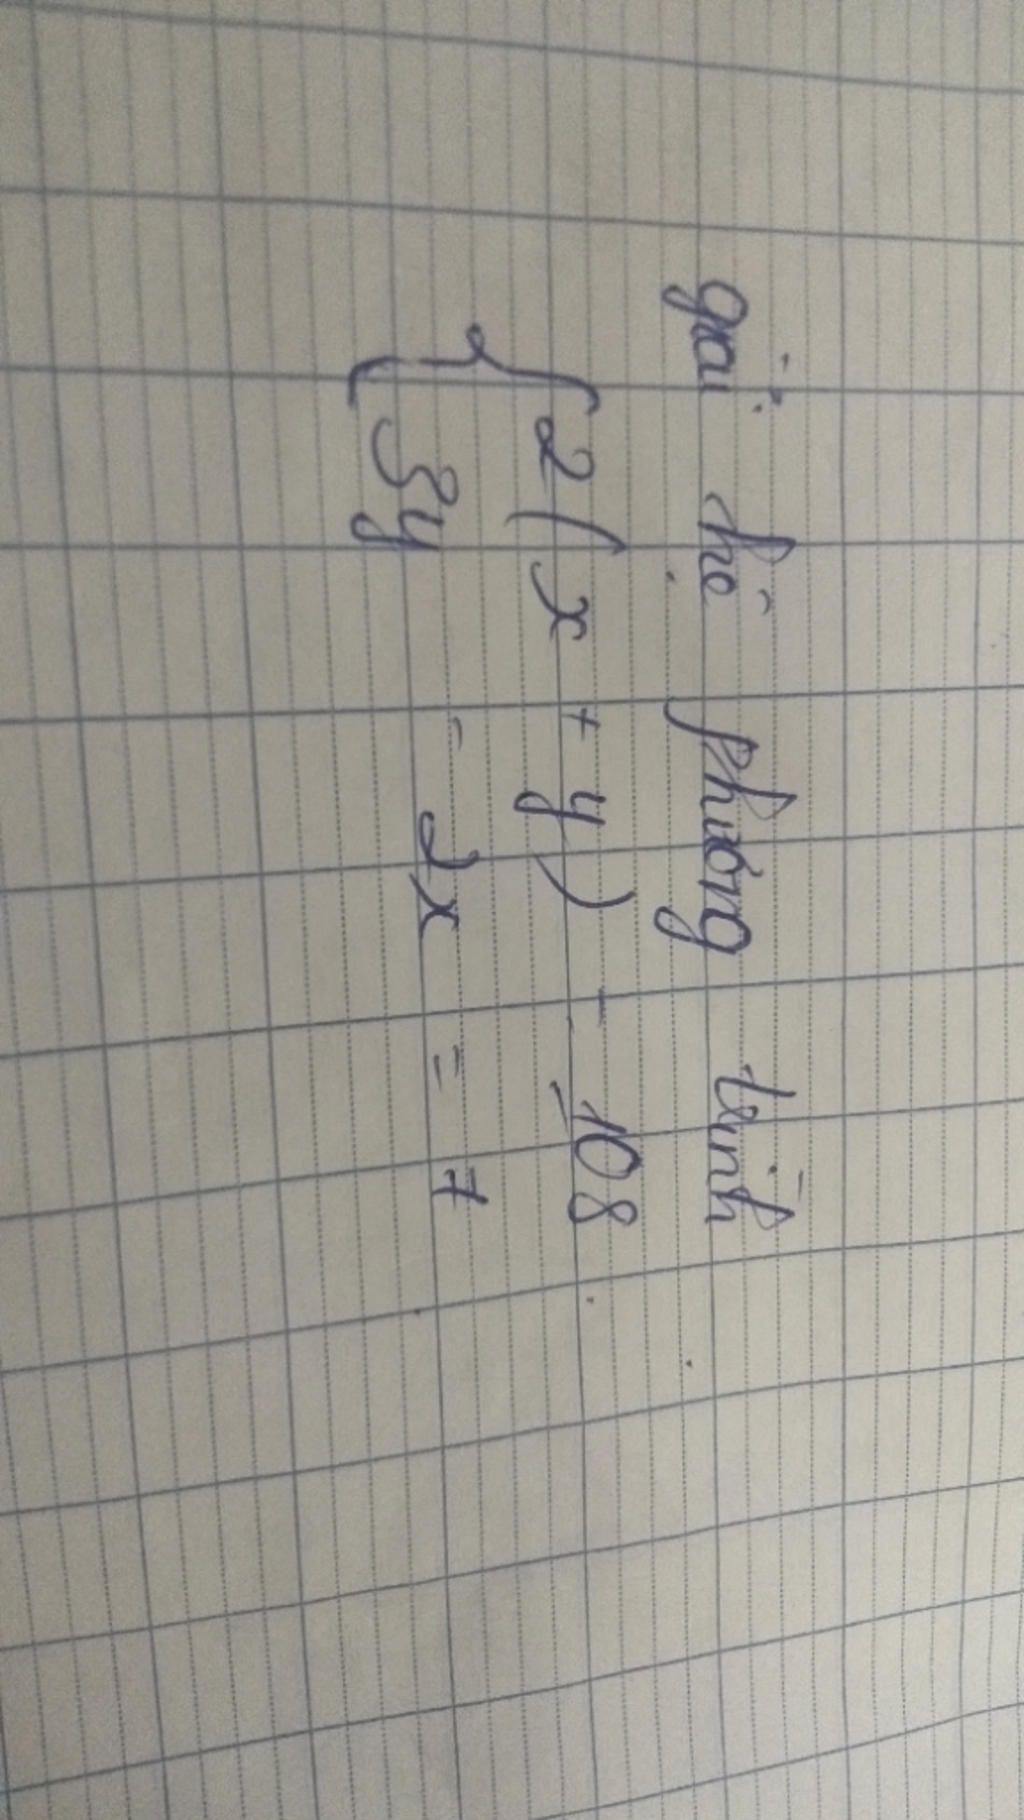 giải hệ phương trình
{ 2(x + y) = 108
3y - 2x = 7